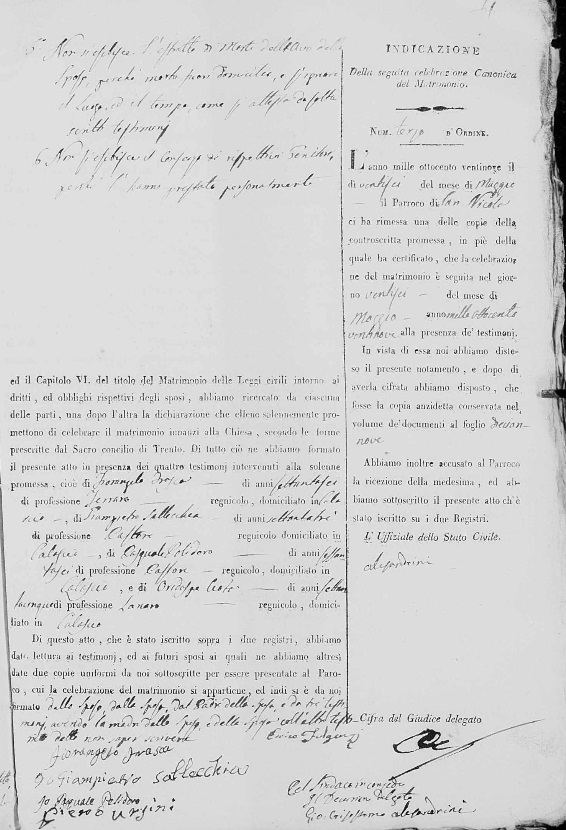 5. Non si esibisce l'estratto di morte dell'Avo dello
Sposo, perchè morto fuori domicilio, e s'ignora
il luogo, ed il tempo, come si attesta da sotto
scritti testimonj
6. Non si esibisce il consenso de' rispettivi Genitori,
perchè l'hanno prestato personalmente
ed il Capitolo VI. del titolo del Matrimonio delle Leggi civili intorno ai
dritti, ed obblighi rispettivi degli sposi, abbiamo ricercato da ciascuna
delle parti, una dopo l'altra la dichiarazione che elleno solennemente pro-
mettono di celebrare il matrimonio innanzi alla Chiesa, secondo le forme
prescritte dal Sacro concilio di Trento. Di tutto ciò ne abbiamo formato
il presente atto in presenza dei quattro testimonj intervenuti alla solenne
promessa, cioè di Fiorangelo Frasca di anni settantasei
di professione Ferraro regnicolo, domiciliato in
, di Giampietro Sallecchia di anni settantatre
di professione regnicolo domiciliato in
Calascio, di Pasquale Polidoro di anni sessan
tasei di professione regnicolo, domiciliato in
Calascio, e di di anni settan
tacinque di professione Lanaro regnicolo, domici-
liato in Calascio
Di questo atto, che è stato iscritto sopra i due registri, abbiamo
dato lettura ai testimonj, ed ai futuri sposi ai quali ne abbiamo altresì
date due copie uniformi da noi sottoscritte per essere presentate al Paro-
co, cui la celebrazione del matrimonio si appartiene, ed indi si è da noi
firmato dallo Sposo, dalla Sposa, dal Padre della Sposa, e da tre testi
monj, avendo la madre dello Sposo, e della Sposa coll'altro testi
monio detto non saper scrivere
Fiorangelo Frasca
Io Giampietro Sallecchia
Io Pasquale Polidoro
Piero Ursini
INDICAZIONE
Della seguita celebrazione Canonica
del Matrimonio.
Num. terzo d'Ordine.
L'anno mille ottocento ventinove il
dì ventisei del mese di Maggio
il Parroco di San Nicola
ci ha rimessa una delle copie della
controscritta promessa, in piè della
quale ha certificato, che la celebrazio-
ne del matrimonio è seguita nel gior-
no ventisei del mese di
Maggio anno mille ottocento
ventinove alla presenza de' testimonj.
In vista di essa noi abbiamo diste-
so il presente notamento, e dopo di
averla cifrata abbiamo disposto, che
fosse la copia anzidetta conservata nel
volume de' documenti al foglio decian
nove
Abbiamo inoltre accusato al Parroco
la ricezione della medesima, ed ab-
biamo sottoscritto il presente atto ch'è
stato iscritto su i due Registri.
L' Uffiziale dello Stato Civile.
Alesandrini
Cifra del Giudice delegato
Pel Sindaco in congedo
Il Decurion Delegato
Gio: Crisostomo Alesandrini